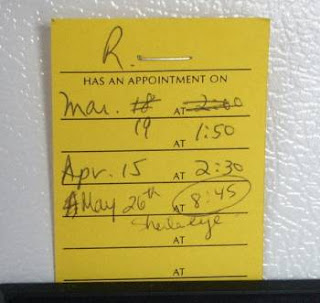 R.
HAS AN APPOINTMENT ON
Mar. 18 AT 2:00
19 AT 1:50
Apr. 15 AT 2:30
May 26th AT 8:45
AT
AT